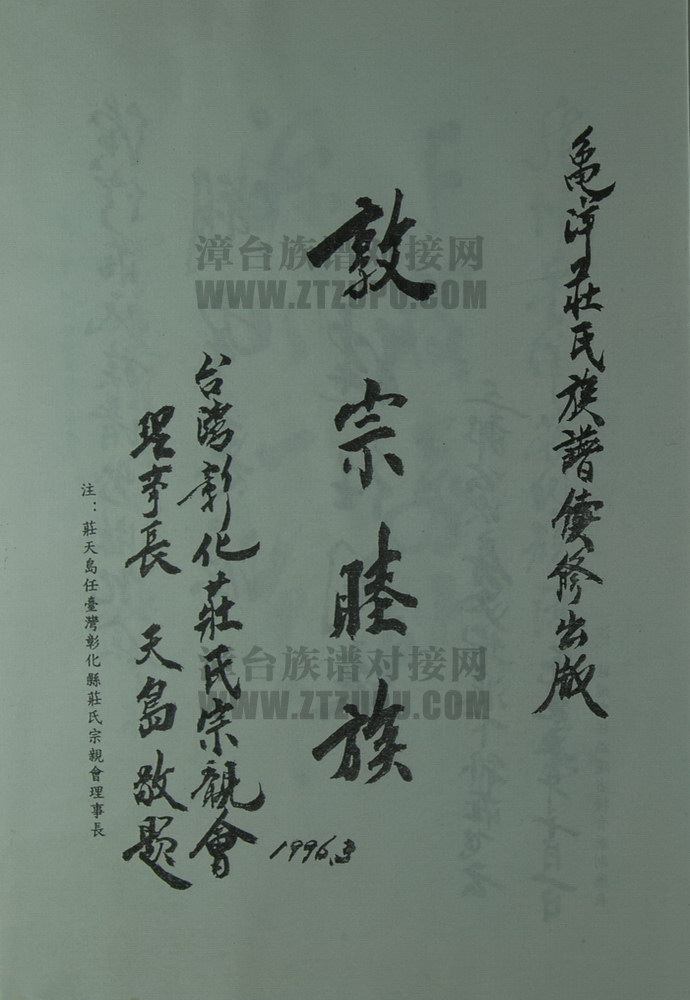 龜洋莊氏族譜續修出版
敦宗睦族
1996.3
台灣彰化莊氏宗親會
理事長 天島敬題
注：莊天島任臺灣彰化縣莊氏宗親會理事長
漳台族谱对接网
WWW.ZTZUPU.COM
漳台族谱对接网
WWW.ZTZUPU.COM